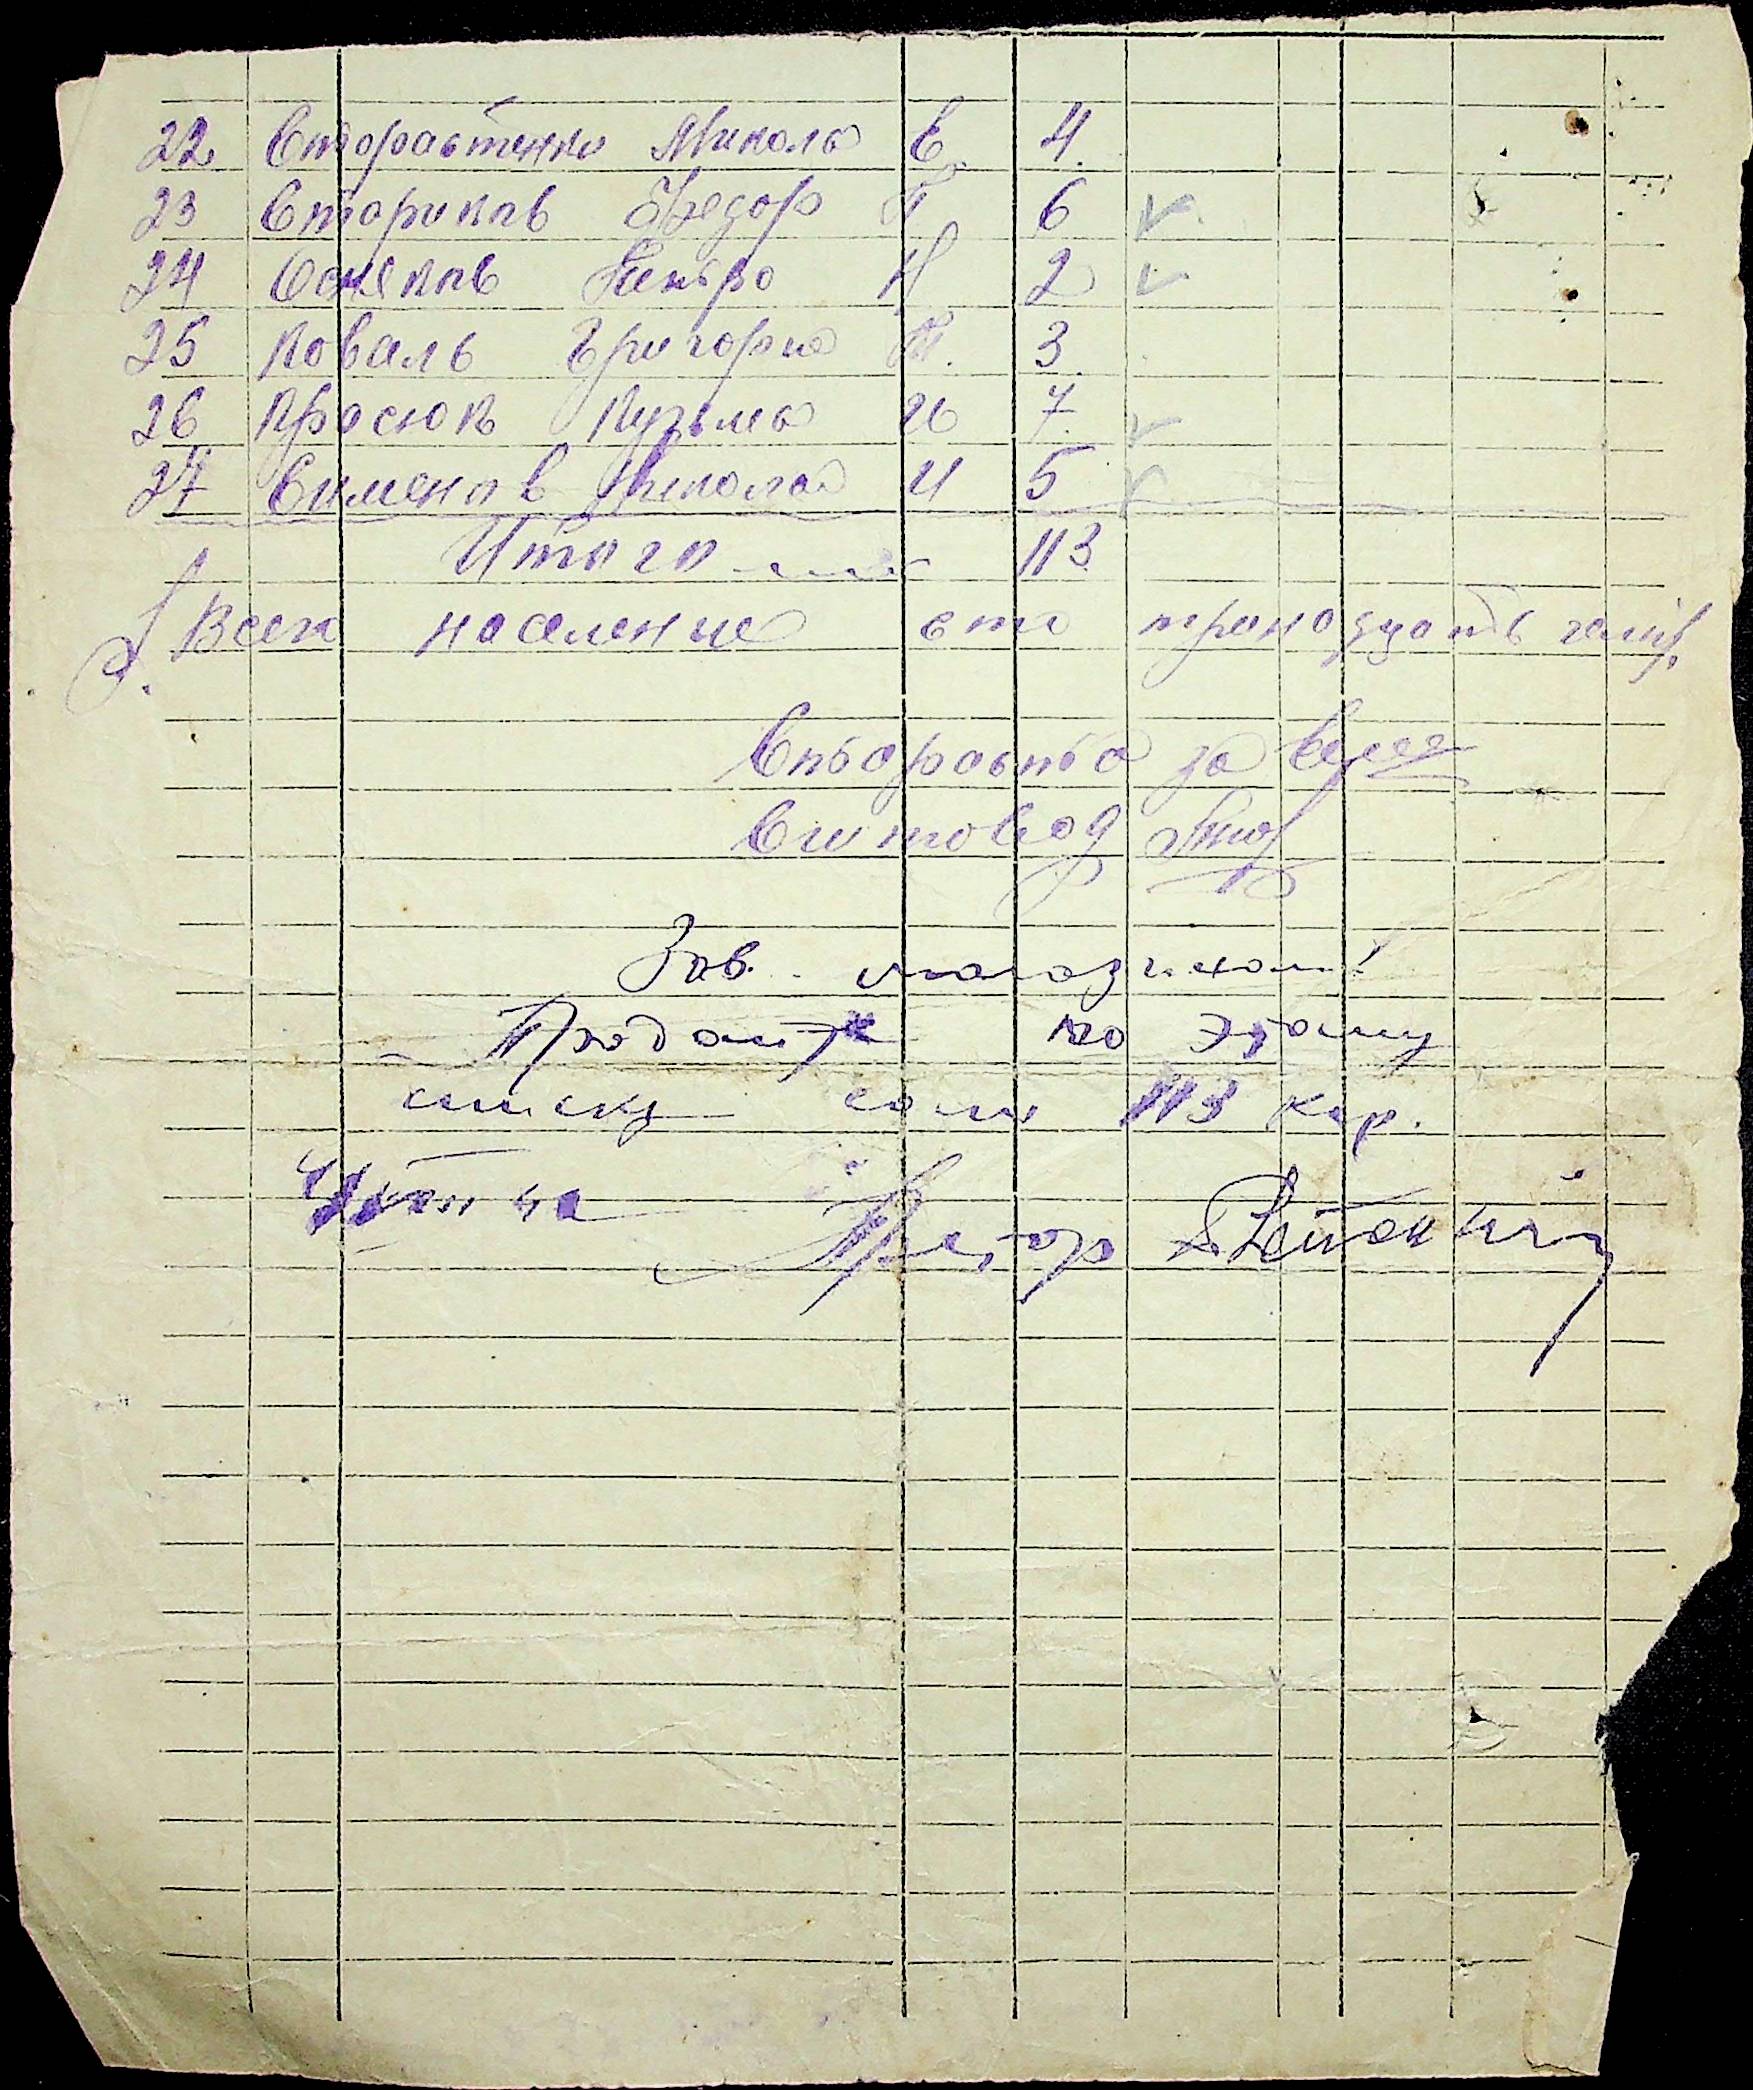 22. Сторастенко Микола Е. 4.
23 Стариков Федор П. 6 v
24 Осипов Петро И 2 v
25 Коваль Григорий П. 3
26 Красюк Кузьма И 7. v
27 Сименов Николай И 5 v
Итого 113
Всего население сто тринадцать
Староста за
Счетовод
Зав. магазином!
Продайте по этому
списку соли 113 кгр.